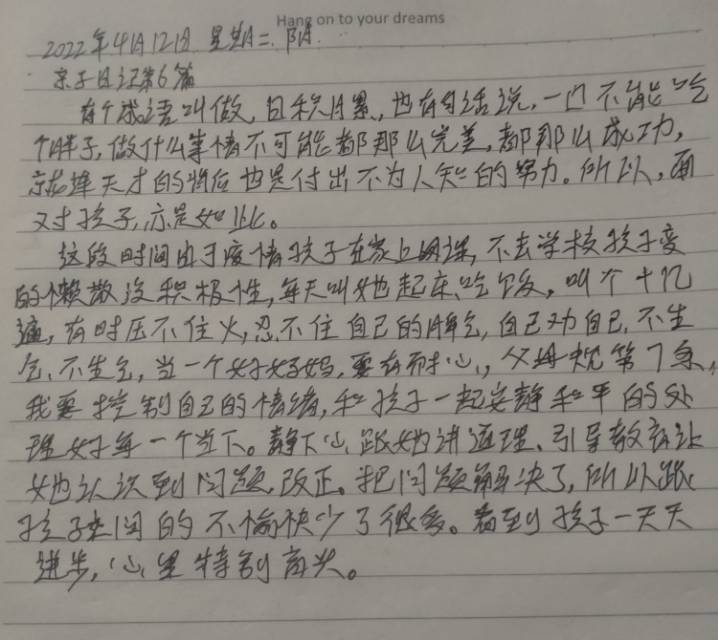 Hang on to your dreams
2022年4月12日 星期二 阴
亲子日记第6篇
有个成语叫做,日积月累,也有句话说,一口不能吃
个胖子,做什么事情不可能都那么完美,都那么成功,
天才的背后也是付出不为人知的努力。所以,面
对孩子,亦是如此。
这段时间由于疫情孩子在家上网课,不去学校孩子变
的懒散没积极性,每天叫她起床,吃饭,叫个十几
遍,有时压不住火,忍不住自己的脾气,自己劝自己,不生
气,不生气,当一个好妈妈,要有耐心,父母规第7条,
我要控制自己的情绪,和孩子一起安静和平的处
理好每一个当下。静下心,跟她讲道理、引导教育让
她认识到问题,改正。把问题解决了,所以跟
孩子之间的不愉快少了很多。看到孩子一天天
进步,心里特别高兴。